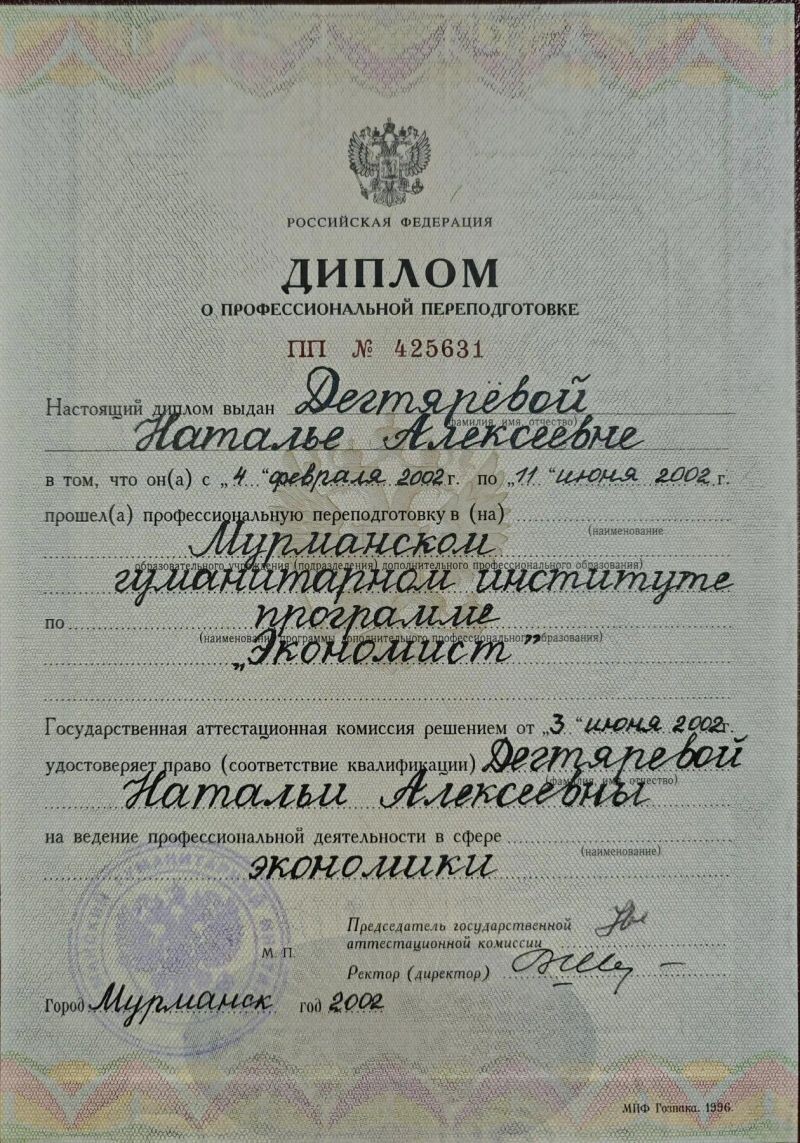 РОССИЙСКАЯ ФЕДЕРАЦИЯ
ДИПЛОМ
О ПРОФЕССИОНАЛЬНОЙ ПЕРЕПОДГОТОВКЕ
ПП № 425631
Настоящий диплом выдан Дегтярёвой
(фамилия, имя, отчество)
Наталье Алексеевне
в том, что он(а) с „4 “ февраля 2002 г. по „11 “ июня 2002 г.
прошел(а) профессиональную переподготовку в (на)
(наименование
Мурманском
образовательного учреждения (подразделения) дополнительного профессионального образования)
гуманитарном институте
по программе
(наименование программы дополнительного профессионального образования)
„Экономист”
Государственная аттестационная комиссия решением от „3 “ июня 2002 г.
удостоверяет право (соответствие квалификации) Дегтяревой
(фамилия, имя, отчество)
Натальи Алексеевны
на ведение профессиональной деятельности в сфере
(наименование)
экономики
Председатель государственной
аттестационной комиссии
М. П.
Ректор (директор)
Город Мурманск год 2002
МПФ Гознака. 1996.